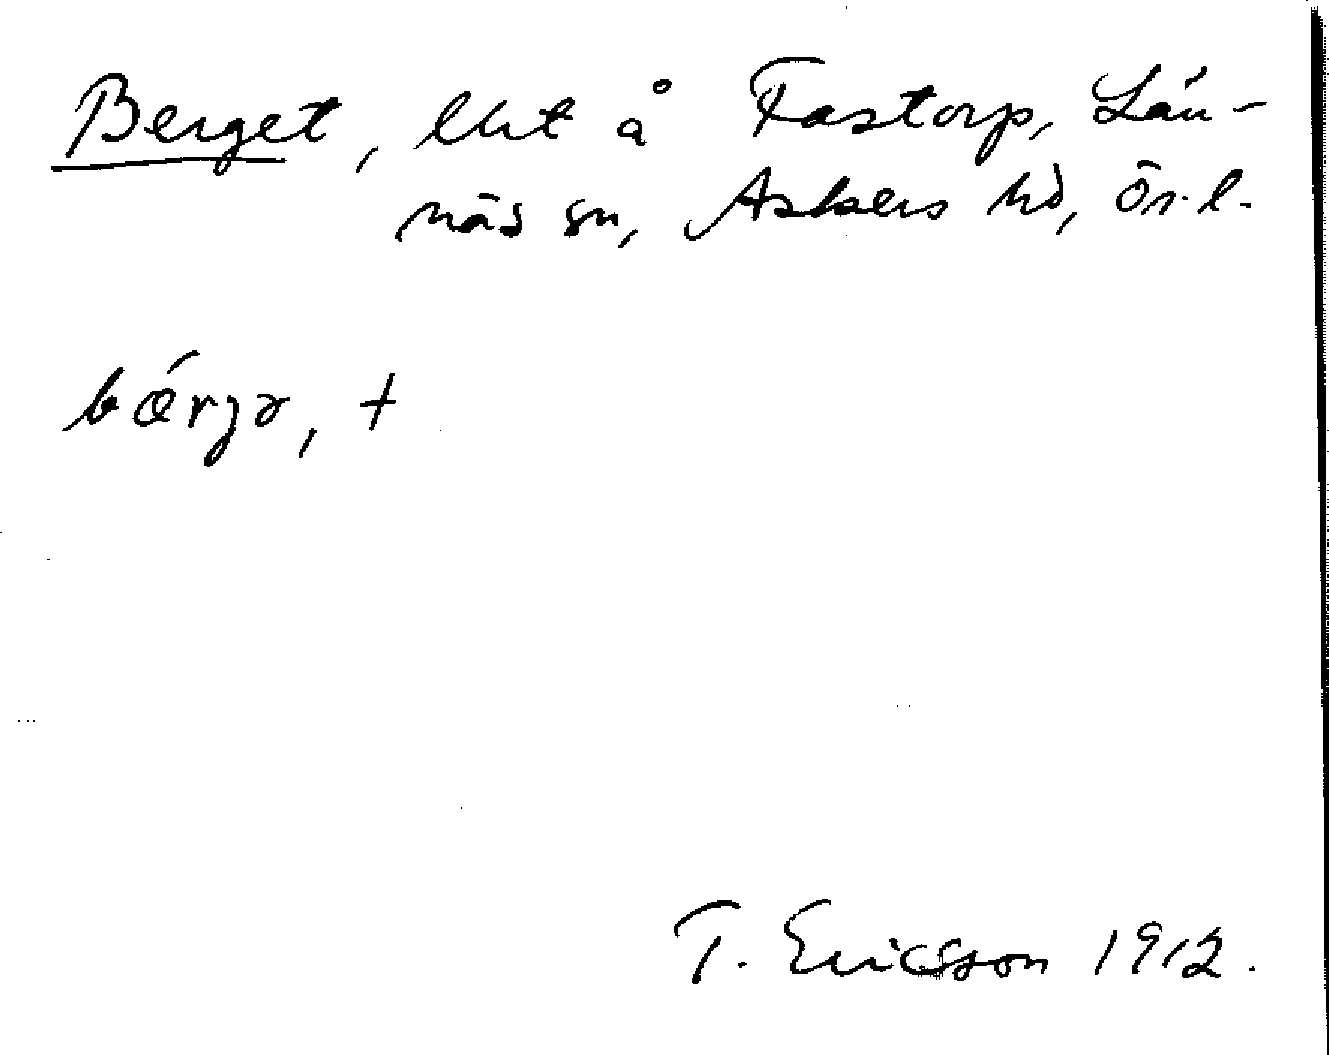 Berget, lht å Fastorp, Län-
näs sn, Askers hd, Ör. l.
bǽrjə, +
T. Ericsson 1912.